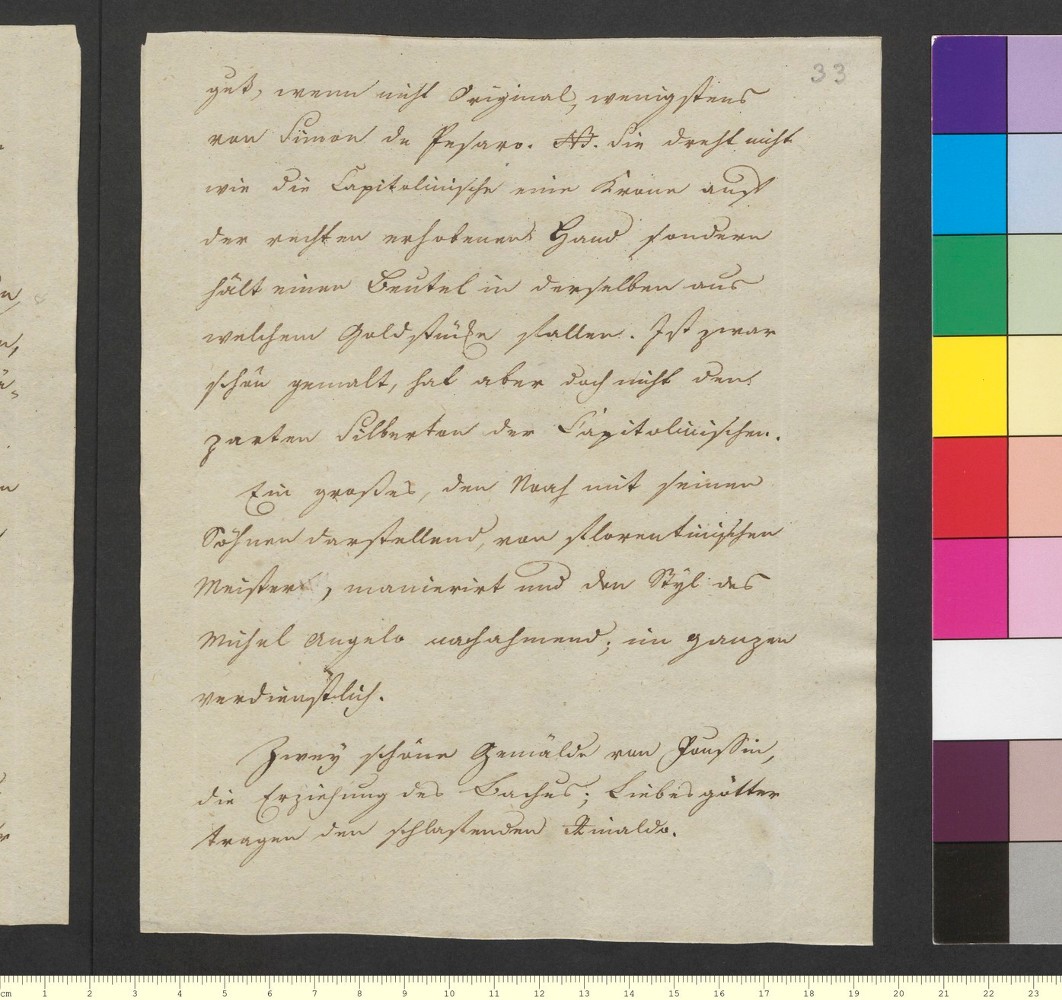 33
gut, wenn nicht Original, wenigstens
von Simon da Pesaro. NB. Sie dreht nicht
wie die Capitolinische eine Krone auf
der rechten erhobenen Hand sondern
hält einen Beutel in derselben aus
welchem Goldstücke fallen. Ist zwar
schön gemalt, hat aber doch nicht den
zarten Silberton der Capitolinischen.
Ein großes, den Noah mit seinen
Söhnen darstellend, von florentinischen
Meister, manierirt und den Styl des
Michel Angelo nachahmend; im ganzen
verdienstlich.
Zwey schöne Gemälde von Poussin,
die Erziehung des Bachus; Liebesgötter
tragen den schlafenden Rinaldo.
cm 1 2 3 4 5 6 7 8 9 10 11 12 13 14 15 16 17 18 19 20 21 22 23